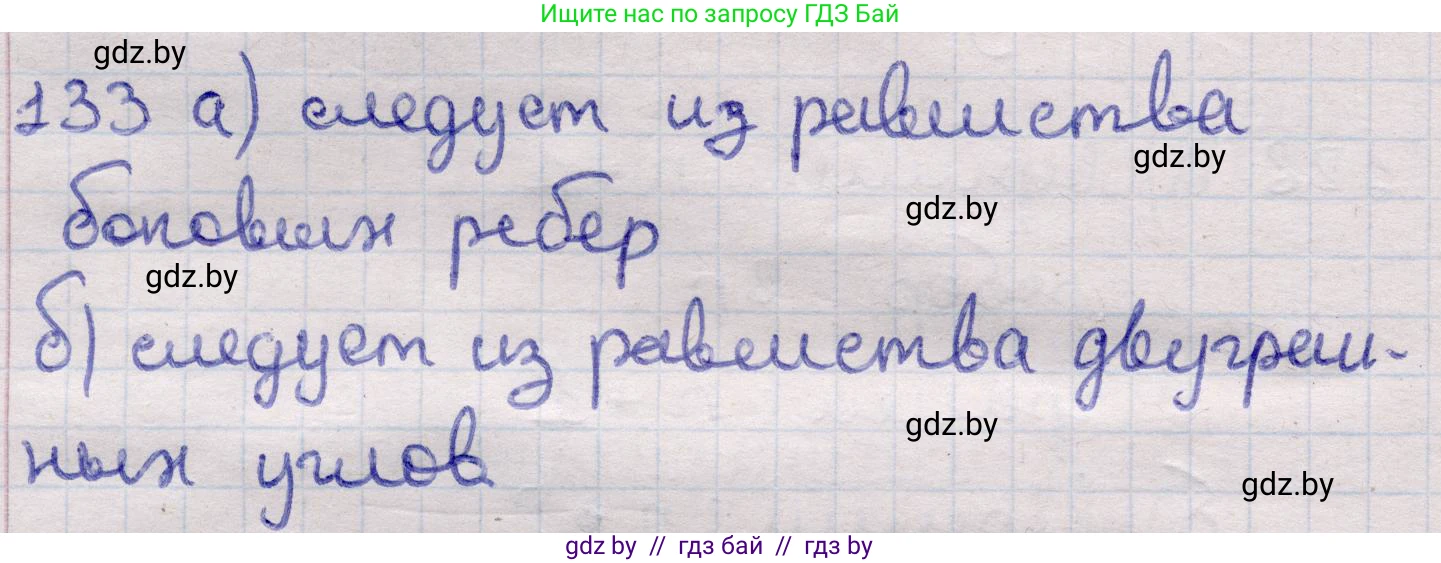 Ищите нас по запросу ГДЗ Бай
gdz.by
133 а) следует из равенства
gdz.by
боковых ребер
gdz.by
gdz.by
б) следует из равенства двугран-
gdz.by
ных углов
gdz.by
gdz by // гдз бай // гдз by